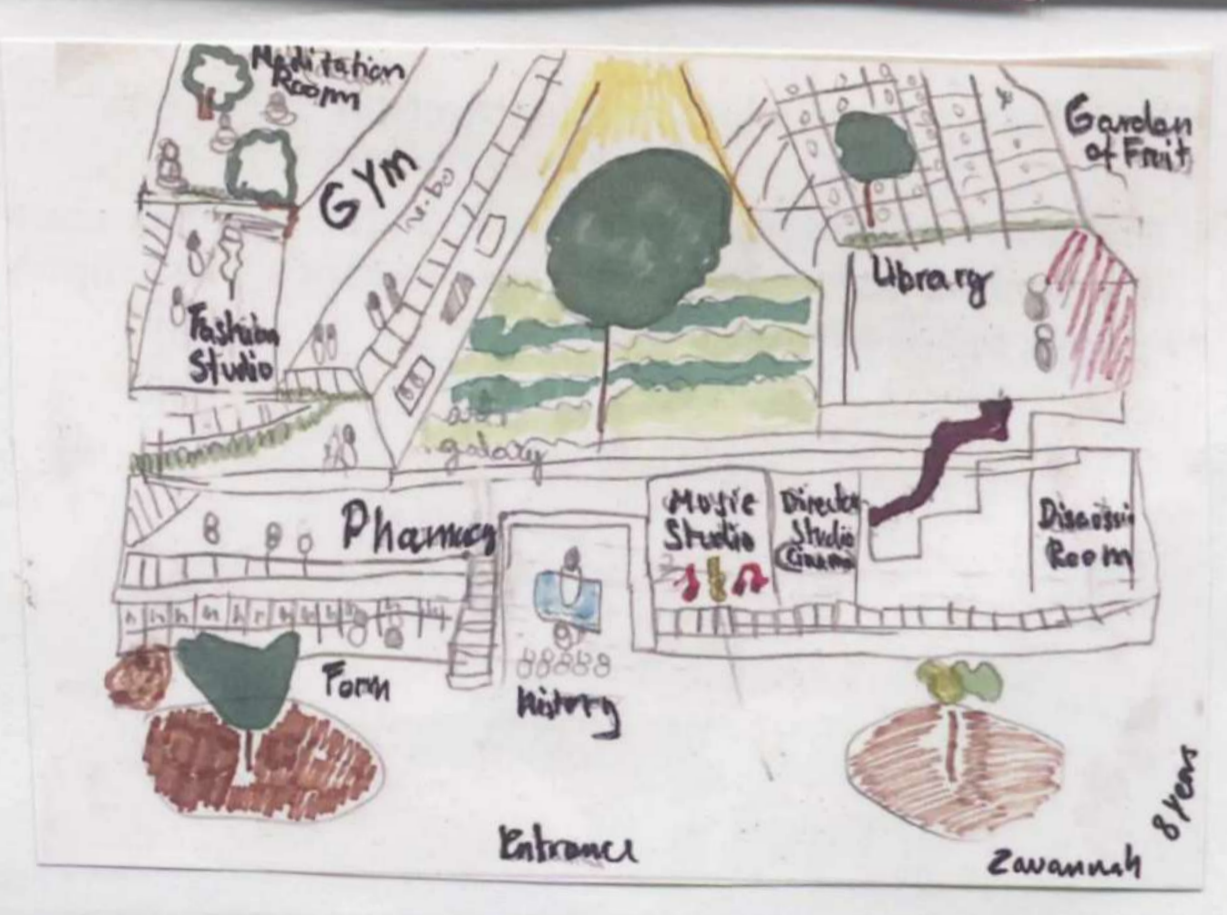 Meditation
Room
GYm
Garden
of Fruit
Library
Fashion
Studio
galary
Phamacy
Music
Studio
Director
Studio
Cinema
Room
Form
History
Entrance
8 years
Zavannah